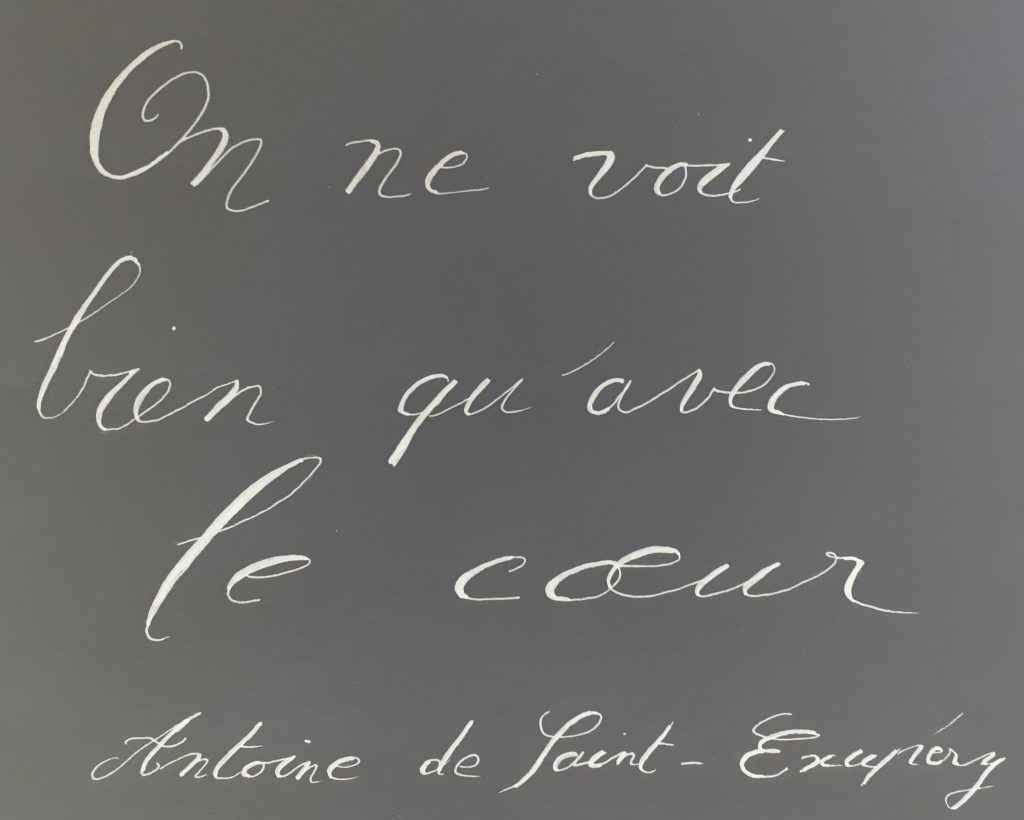 On ne voit
bien qu'avec
le cœur
Antoine de Saint-Exupéry